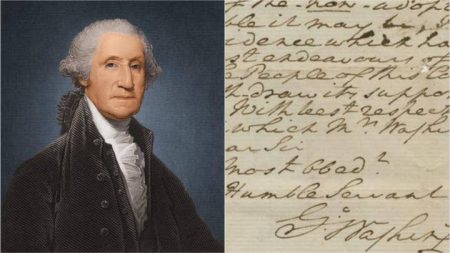 of the non-adop
ble it may be, I
idence which ha
st endeavours of
e People of this
draw its suppo
With best respec
which Mrs Washi
ar Sir
most obedt
Humble Servant
Go Washin